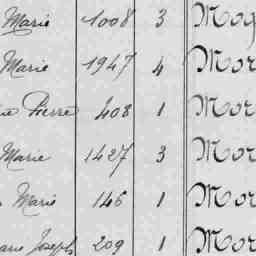 Marie 1008 3 Mog
Marie 1947 4 Mor
Pierre 408 1 Mor
Marie 1427 3 Mor
Marie 146 1 Mor
Joseph 209 1 Mor